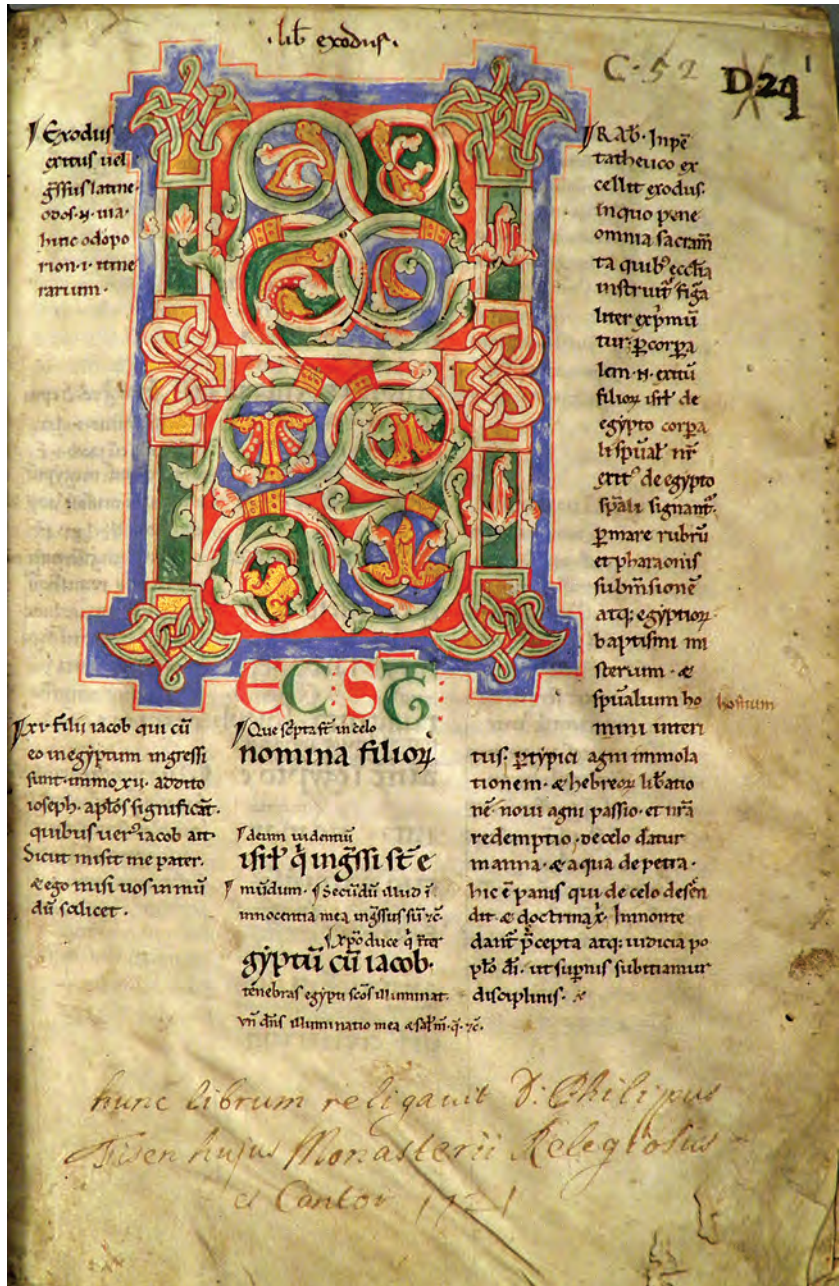 ·lib exodus·
C·52
D 29
1
Exodus
exitus uel
g̃ssus latine·
odos·n·uia·
hinc odopo
rion·i·itine
rarium·
RAb· Inpe
tatheuco ex
cellit exodus·
In quo pene
omnia sacram̃
ta quib; eccl̃ia
instruit̃ figa
liter exp̃mu
tur· ꝑ corpa
lem·n·exitũ
filioꝝ isrl̃ de
egypto corpa
li spũal nr̃
exit; de egypto
sp̃ali signant̃·
ꝑ mare rubrũ
et pharaonis
submsionẽ
atq; egyptioꝝ
baptismi mi
sterium· &
spũalium ho hostium
mini interi
tus· ꝑ typici agni immola
tionem· & hebreoꝝ lib̃atio
nẽ· noui agni passio· et nr̃a
redemptio· de celo datur
manna· & aqua de petra·
hic ẽ panis qui de celo descẽn
dit & doctrina x̃· In monte
dant̃ p̃cepta atq; iudicia po
pl̃o dĩ· ut supnis subitiamur
disciplinis· &
EC: ST:
xv· filii iacob qui cũ
eo in egyptum ingressi
sunt· immo xii· addito
ioseph· apl̃os significãt·
quibus uer; iacob ait·
Sicut misit me pater·
& ego misi uos in mũ
dũ scilicet·
Que sc̃pta st̃ in celo
nomina filioꝝ
deum uidentiũ
isrl̃ q̃ ing̃ssi st̃ e
mũdum· Secũdũ illud ĩ
innocentia mea ing̃ssus sũ ⁊c̃·
Xp̃o duce q̃ inter
gyptũ cũ iacob·
tenebras egypti sc̃os illuminat·
vñ dñs illuminatio mea & sal̃ m̃·q̃·⁊c̃·
hunc librum religauit D: Philipus
Tisen hujus Monasterii Relegiosus
et Cantor 1721